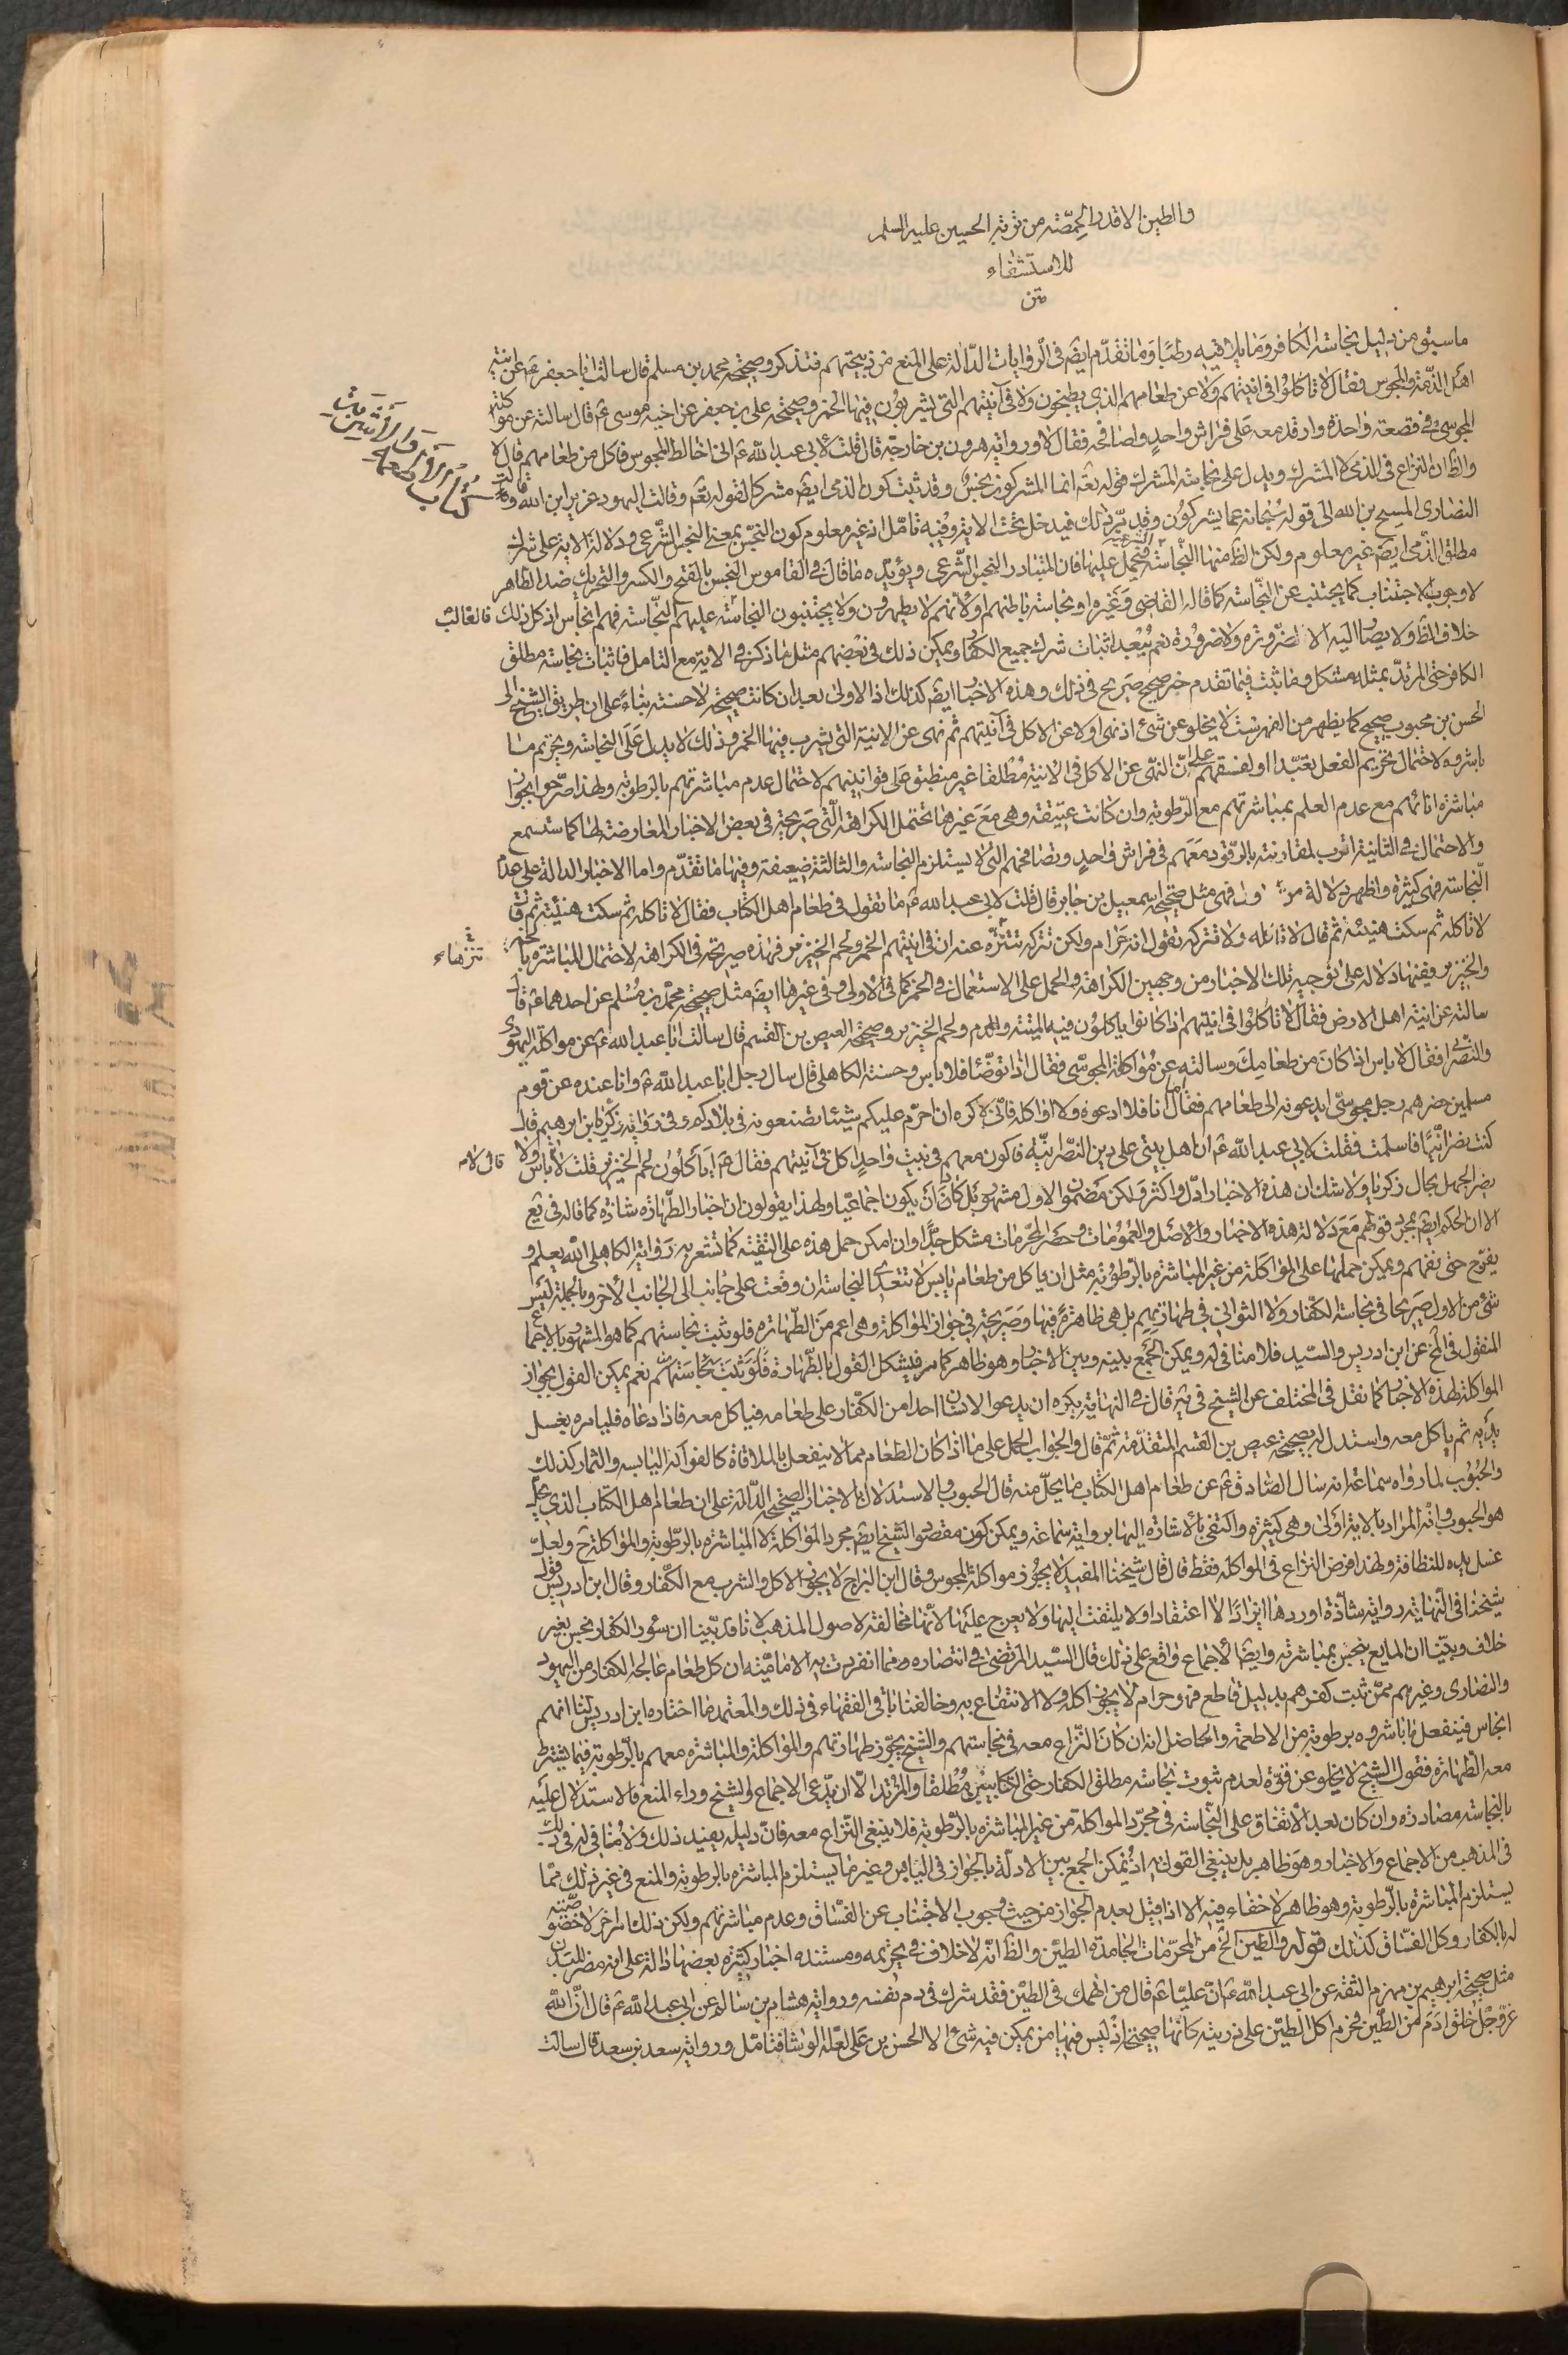 والطين الا قدر الحمصة من تربة الحسين عليه السلم
للاستشفاء
متن
ما سبق من دليل نجاسة الكافر وما يلاقيه رطبا وما تقدم ايضا في الروايات الدالة على المنع من ذبيحتهم فتذكر وصحيحة محمد بن مسلم قال سالت ابا جعفر عن انية
اهل الذمة والمجوس فقال لا تاكلوا في انيتهم ولا عن طعامهم الذي يطبخون ولا في آنيتهم التي يشربون فيها الخمر وصحيحة على بن جعفر عن اخيه موسى ع قال سالته عن مواكلة
المجوسي في قصعة واحدة وارقد معه على فراش واحد واصافحه فقال لا ورواية هرون بن خارجة قال قلت لابي عبد الله ع انى اخالط المجوس فاكل من طعامهم قال لا
كتاب الاثرك والاثنيت
والظ ان النزاع في الذمي لا المشرك ويدل على نجاسة المشرك قوله تعه انما المشركون نجس وقد ثبت كون الذمى ايضا مشركا لقوله تعه وقالت اليهود عزير ابن الله وقالت
النصارى المسيح بن الله الى قوله سبحانه عما يشركون وقد بر ذلك فيدخل تحت الاية وفيه تامل اذ غير معلوم كون النجس بمعنى النجس الشرعي ودلالة الاية على شرك
مطلق الذمى ايضا غير معلوم ولكن الظ منها النجاسة فتحمل عليها فان المتبادر النجس الشرعى ويؤيده ما قال في القاموس النجس بالفتح والكسر والتحريك ضد الطاهر
لا وجوب الاجتناب كما يجتنب عن النجاسة كما قاله القاضي وغيره او نجاسة باطنهم او لانهم لا يطهرون ولا يجتنبون النجاسة عليهم النجاسة فهم انجاس اذ كل ذلك فالغالب
خلاف الظ ولا يصار اليه الا لضرورة ولا ضرورة نعم يبعد اثبات شرك جميع الكفار ويمكن ذلك في بعضهم مثل ما ذكر في الاية مع التامل فاثبات نجاسة مطلق
الكافر حتى المرتد بمثله مشكل وما ثبت فيما تقدم خبر صحيح صريح في ذلك وهذه الاخبار ايضا كذلك اذ الاولى بعد ان كانت صحيحة لا حسنة بناء على ان طريق الشيخ الى
الحسن بن محبوب صحيح كما يظهر من الفهرست لا يخلو عن شئ اذ نهى اولا عن الاكل في آنيتهم ثم نهى عن الانية التي يشرب فيها الخمر وذلك لا يدل على النجاسة وتحريم ما
باشروه لاحتمال تحريم الفعل تعبدا او لفسقهم على ان النهى عن الاكل في الانية مطلقا غير منطبق على قوانينهم لاحتمال عدم مباشرتهم بالرطوبة ولهذا صرحوا بجواز
مباشرة انائهم مع عدم العلم بمباشرتهم مع الرطوبة وان كانت عتيقة وهي مع غيرها تحتمل الكراهة التي صريحة في بعض الاخبار المعارضة لها كما ستسمع
والاحتمال في الثانية اقرب لمقارنته بالرقود معهم في فراش واحد وتصافحهم التي لا يستلزم النجاسة والثالثة ضعيفة وفيها ما تقدم واما الاخبار الدالة على عدم
النجاسة فهي كثيرة واظهر دلالة فهى مثل صحيحة اسمعيل بن جابر قال قلت لابي عبد الله ع ما تقول في طعام اهل الكتاب فقال لا تاكله ثم سكت هنيئة ثم قال
لا تاكله ثم سكت هنيئة ثم قال لا تاكله ولا تتركه تقول انه حرام ولكن تتركه تتنزه عنه ان في انيتهم الخمر ولحم الخنزير فهذه صريحة في الكراهة لاحتمال المباشرة بالخمر
تنزهاء
والخنزير ففيها دلالة على توجيه تلك الاخبار من وجهين الكراهة والحمل على الاستعمال في الخمر كما في الاولى وفي غيرها ايضا مثل صحيحة محمد بن مسلم عن احدهما ع قال
سالته عن انية اهل الارض فقال لا تاكلوا في انيتهم اذا كانوا ياكلون فيه الميتة والدم ولحم الخنزير وصحيحة العيص بن القسم قال سالت ابا عبد الله ع عن مواكلة اليهودي
والنصراني فقال لا باس اذا كان من طعامك وسالته عن مواكلة المجوسي فقال اذا توضأ فلا باس وحسنة الكاهلى قال سال رجل ابا عبد الله ع وانا عنده عن قوم
مسلمين حضرهم رجل مجوسي ايدعونه الى طعامهم فقال اما انا فلا ادعوه ولا اواكله فانى لاكره ان احرم عليكم شيئا تصنعونه في بلادكم وفي رواية زكريا بن ابرهيم قال
كنت نصرانيا فاسلمت فقلت لابي عبد الله ع ان اهل بيتى على دين النصرانية فاكون معهم في بيت واحد اكل في آنيتهم فقال ع اياكلون لحم الخنزير قلت لا قال لا باس ولا
يضر الجهل بحال زكريا ولا شك ان هذه الاخبار ادل واكثر ولكن مضمون الاول مشهور بل كاد ان يكون اجماعيا ولهذا يقولون ان اخبار الطهارة شاذة كما قاله في يع
الا ان الحكم ايضا بمجرد قولهم مع دلالة هذه الاخبار والاصل والعمومات وحصر المحرمات مشكل جدا وان امكن حمل هذه على التقية كما تشعر به رواية الكاهلى الله يعلم و
يفرج حتى نفهم ويمكن حملها على المواكلة من غير المباشرة بالرطوبة مثل ان ياكل من طعام يابس لا تتعدى النجاسة ان وقعت على جانب الى الجانب الاخر وبالجملة ليس
شئ من الاول صريحا في نجاسة الكفار ولا الثواني في طهارتهم بل هي ظاهرة فيها وصريحة في جواز المواكلة وهي اعم من الطهارة فلو ثبت نجاستهم كما هو المشهور بالاجماع
المنقول في الخ عن ابن ادريس والسيد فلا منافى له ويمكن الجمع بينه وبين الاخبار وهو ظاهر كما مر فيشكل القول بالطهارة فلو ثبت نجاستهم نعم يمكن القول بجواز
المواكلة لهذه الاخبار كما نقل في المختلف عن الشيخ في ية قال في النهاية يكره ان يدعو الانسان احدا من الكفار على طعامه فياكل معه فاذا دعاه فليامره بغسل
يديه ثم ياكل معه واستدل له بصحيحة عيص بن القسم المتقدمة ثم قال والجواب الحمل على ما اذا كان الطعام مما لا ينفعل بالملاقاة كالفواكه اليابسة والثمار كذلك
والحبوب لما رواه سماعة انه سال الصادق ع عن طعام اهل الكتاب ما يحل منه قال الحبوب والاستدلال بالاخبار الصحيحة الدالة على ان طعام اهل الكتاب الذي يحل
هو الحبوب وانه المراد بالاية اولى وهي كثيرة واكتفى بالاشارة اليها برواية سماعة ويمكن كون مقصود الشيخ ايضا مجرد المواكلة لا المباشرة بالرطوبة والمواكلة ح ولعل
غسل يده للنظافة ولهذا فرض النزاع في المواكلة فقط قال قال شيخنا المفيد لا يجوز مواكلة المجوس وقال ابن البراج لا يجوز الاكل والشرب مع الكفار وقال ابن ادريس قول
شيخنا في النهاية رواية شاذة اوردها ايرادا لا اعتقادا ولا يلتفت اليها ولا يعرج عليها لانها مخالفة لاصول المذهب لانا قد بينا ان سؤر الكفار نجس بغير
خلاف وبينا ان المايع ينجس بمباشرته وايضا الاجماع واقع على ذلك قال السيد المرتضى في انتصاره مما انفردت به الامامية ان كل طعام عالجه الكفار من اليهود
والنصارى وغيرهم ممن ثبت كفرهم بدليل قاطع فهو حرام لا يجوز اكله ولا الانتفاع به وخالفنا باقى الفقهاء في ذلك والمعتمد ما اختاره ابن ادريس لنا انهم
انجاس فينفعل ما باشروه برطوبة من الاطعمة والحاصل انه ان كان النزاع معه في نجاستهم والشيخ يجوز طهارتهم والمواكلة والمباشرة معهم بالرطوبة فيما يشترط
معه الطهارة فقول الشيخ لا يخلو عن قوة لعدم ثبوت نجاسة مطلق الكفار حتى الكتابيين مطلقا والمرتد الا ان يدعى الاجماع والشيخ وراء المنع فالاستدلال عليه
بالنجاسة مصادرة وان كان بعد الاتفاق على النجاسة في مجرد المواكلة من غير المباشرة بالرطوبة فلا ينبغى النزاع معه فان دليله يفيد ذلك ولا منافى له في ذلك
في المذهب من الاجماع والاخبار وهو ظاهر بل ينبغى القول به اذ يمكن الجمع بين الادلة بالجواز في اليابس وغير ما يستلزم المباشرة بالرطوبة والمنع في غير ذلك مما
يستلزم المباشرة بالرطوبة وهو ظاهر لا خفاء فيه الا اذا قيل بعدم الجواز من حيث وجوب الاجتناب عن الفساق وعدم مباشرتهم ولكن ذلك امر اخر لا خصوصية
له بالكفار وكل الفساق كذلك قوله والطين الخ من المحرمات الجامدة الطين والظ انه لا خلاف في تحريمه ومستنده اخبار كثيرة بعضها دالة على انه مضر للبدن
مثل صحيحة ابرهيم بن مهزم الثقة عن ابى عبد الله ع ان عليا ع قال من انهمك في الطين فقد شرك في دم نفسه ورواية هشام بن سالم عن ابى عبد الله ع قال ان الله
عز وجل خلق ادم من الطين فحرم اكل الطين على ذريته كانها صحيحة اذ ليس فيها من يمكن فيه شئ الا الحسن بن على لعله الوشا فتامل ورواية سعد بن سعد قال سالت